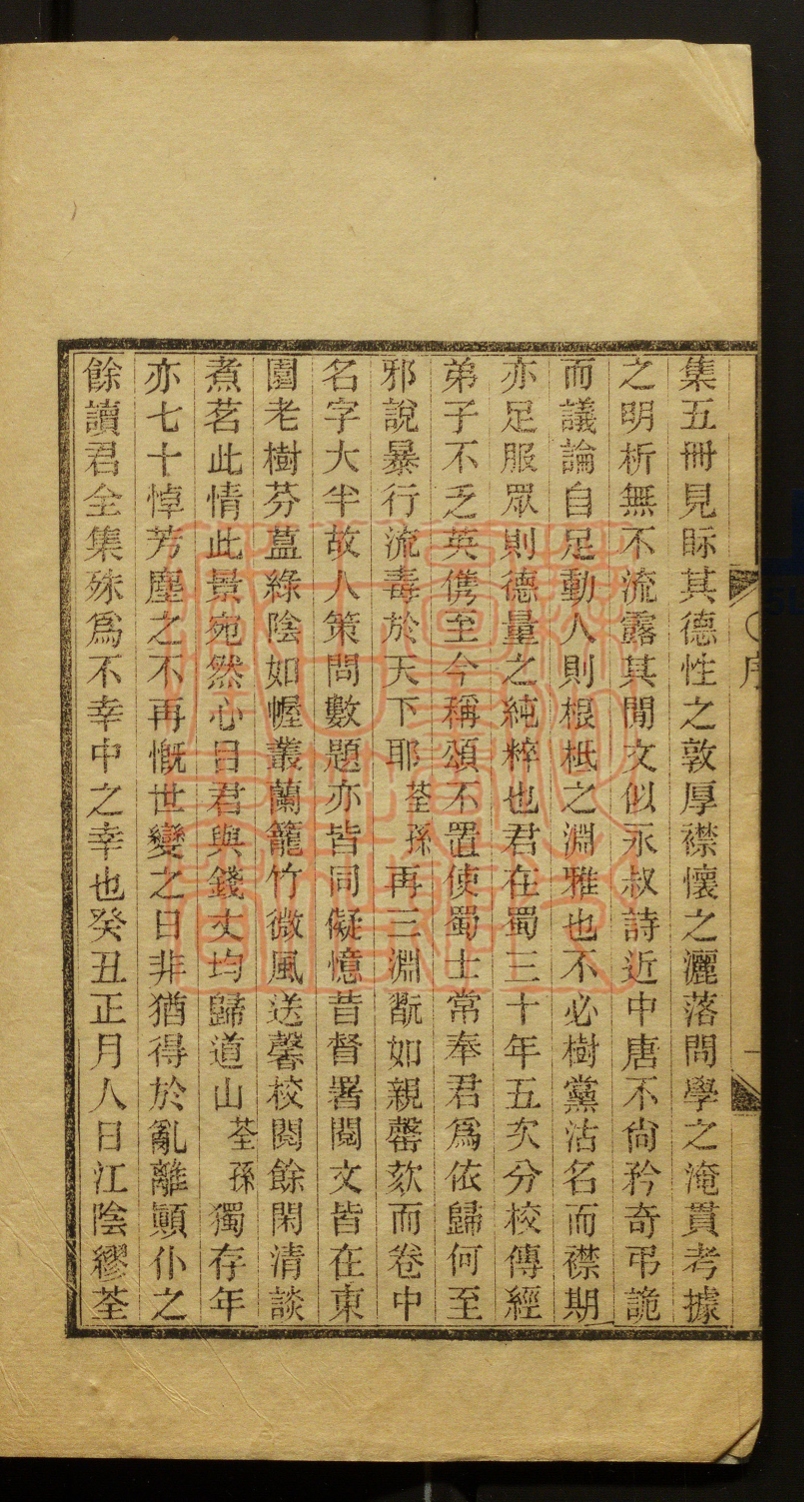 序
一
集五冊見眎其德性之敦厚襟懷之灑落問學之淹貫考據
之明析無不流露其閒文似永叔詩近中唐不尙矜奇弔詭
而議論自足動人則根柢之淵雅也不必樹黨沽名而襟期
亦足服眾則德量之純粹也君在蜀三十年五次分校傳經
弟子不乏英儁至今稱頌不置使蜀士常奉君爲依歸何至
邪說暴行流毒於天下耶荃孫再三淵翫如親罄欬而卷中
名字大半故人策問數題亦皆同儗憶昔督署閱文皆在東
園老樹芬葐綠陰如幄叢蘭籠竹微風送馨校閱餘閑清談
煮茗此情此景宛然心目君與錢丈均歸道山荃孫獨存年
亦七十悼芳塵之不再慨世變之日非猶得於亂離顚仆之
餘讀君全集殊爲不幸中之幸也癸丑正月人日江陰繆荃